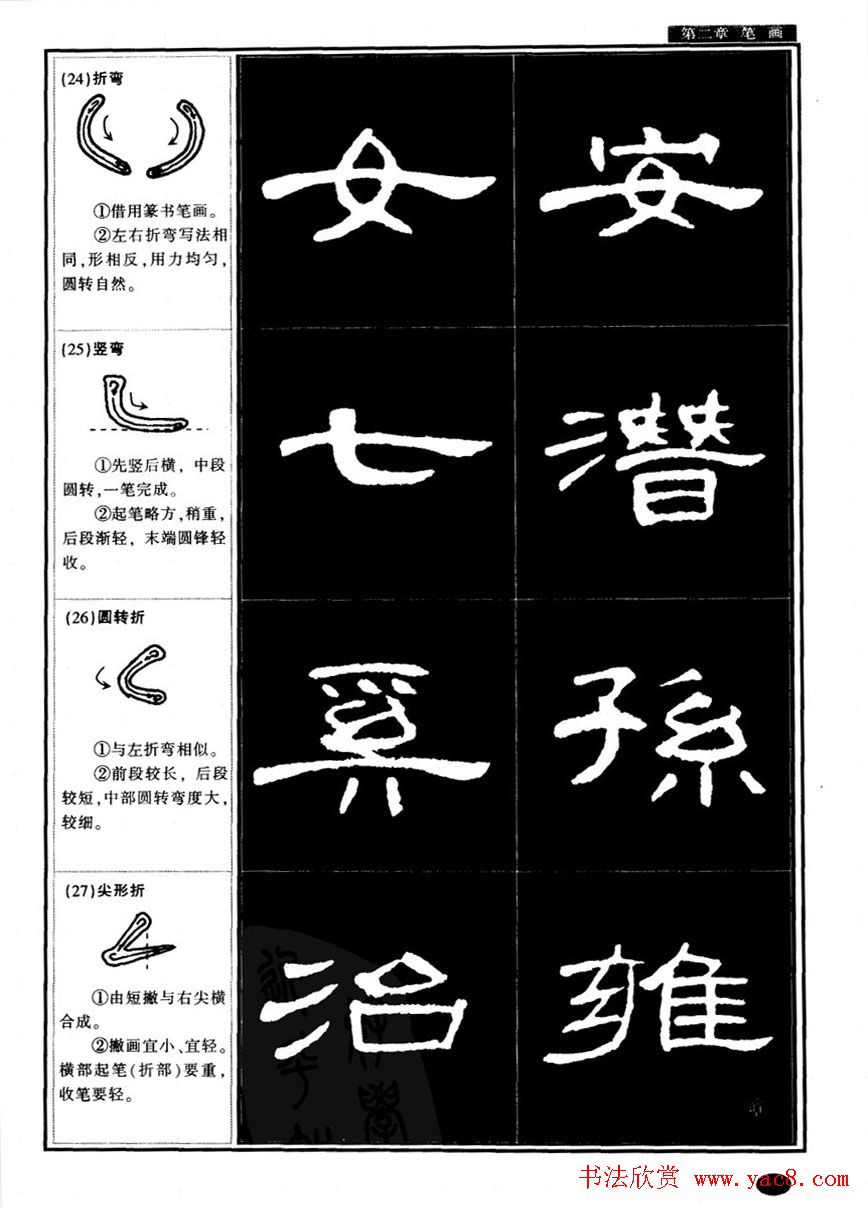 第二章 笔 画
(24)折弯
①借用篆书笔画。
②左右折弯写法相
同,形相反,用力均匀,
圆转自然。
女 安
(25)竖弯
①先竖后横，中段
圆转,一笔完成。
②起笔略方,稍重,
后段渐轻，末端圆锋轻
收。
七 潛
(26)圆转折
①与左折弯相似。
②前段较长，后段
较短,中部圆转弯度大,
较细。
奚 孫
(27)尖形折
①由短撇与右尖横
合成。
②撇画宜小、宜轻。
横部起笔(折部)要重,
收笔要轻。
治 雍
书法欣赏 www.yac8.com